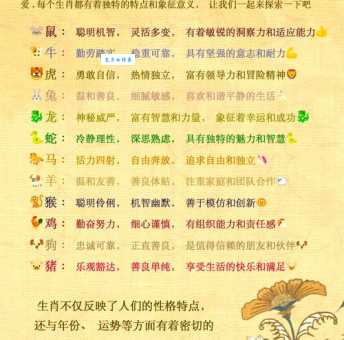 爱,每个生肖都有着独特的特点和象征意义, 让我们一起来探索一下吧
鼠: 聪明机智, 灵活多变, 有着敏锐的洞察力和适应能力
牛: 勤劳踏实, 稳重可靠, 具有坚强的意志和耐力
虎: 勇敢自信, 热情独立, 富有领导力和冒险精神
兔: 温和善良, 细腻敏感, 喜欢和谐平静的生活
龙: 神秘威严, 富有智慧和力量, 象征着幸运和成功
蛇: 冷静理性, 深思熟虑, 具有独特的魅力和智慧
马: 活力四射, 自由奔放, 追求自由和独立
羊: 温和友善, 善良体贴, 注重家庭和团队合作
猴: 聪明伶俐, 机智幽默, 善于模仿和创新
鸡: 勤奋努力, 细心谨慎, 有组织能力和责任感
狗: 忠诚可靠, 正直善良, 是值得信赖的朋友和伙伴
猪: 乐观豁达, 善良单纯, 享受生活的快乐和满足
生肖不仅反映了人们的性格特点,
还与年份、运势等方面有着密切的